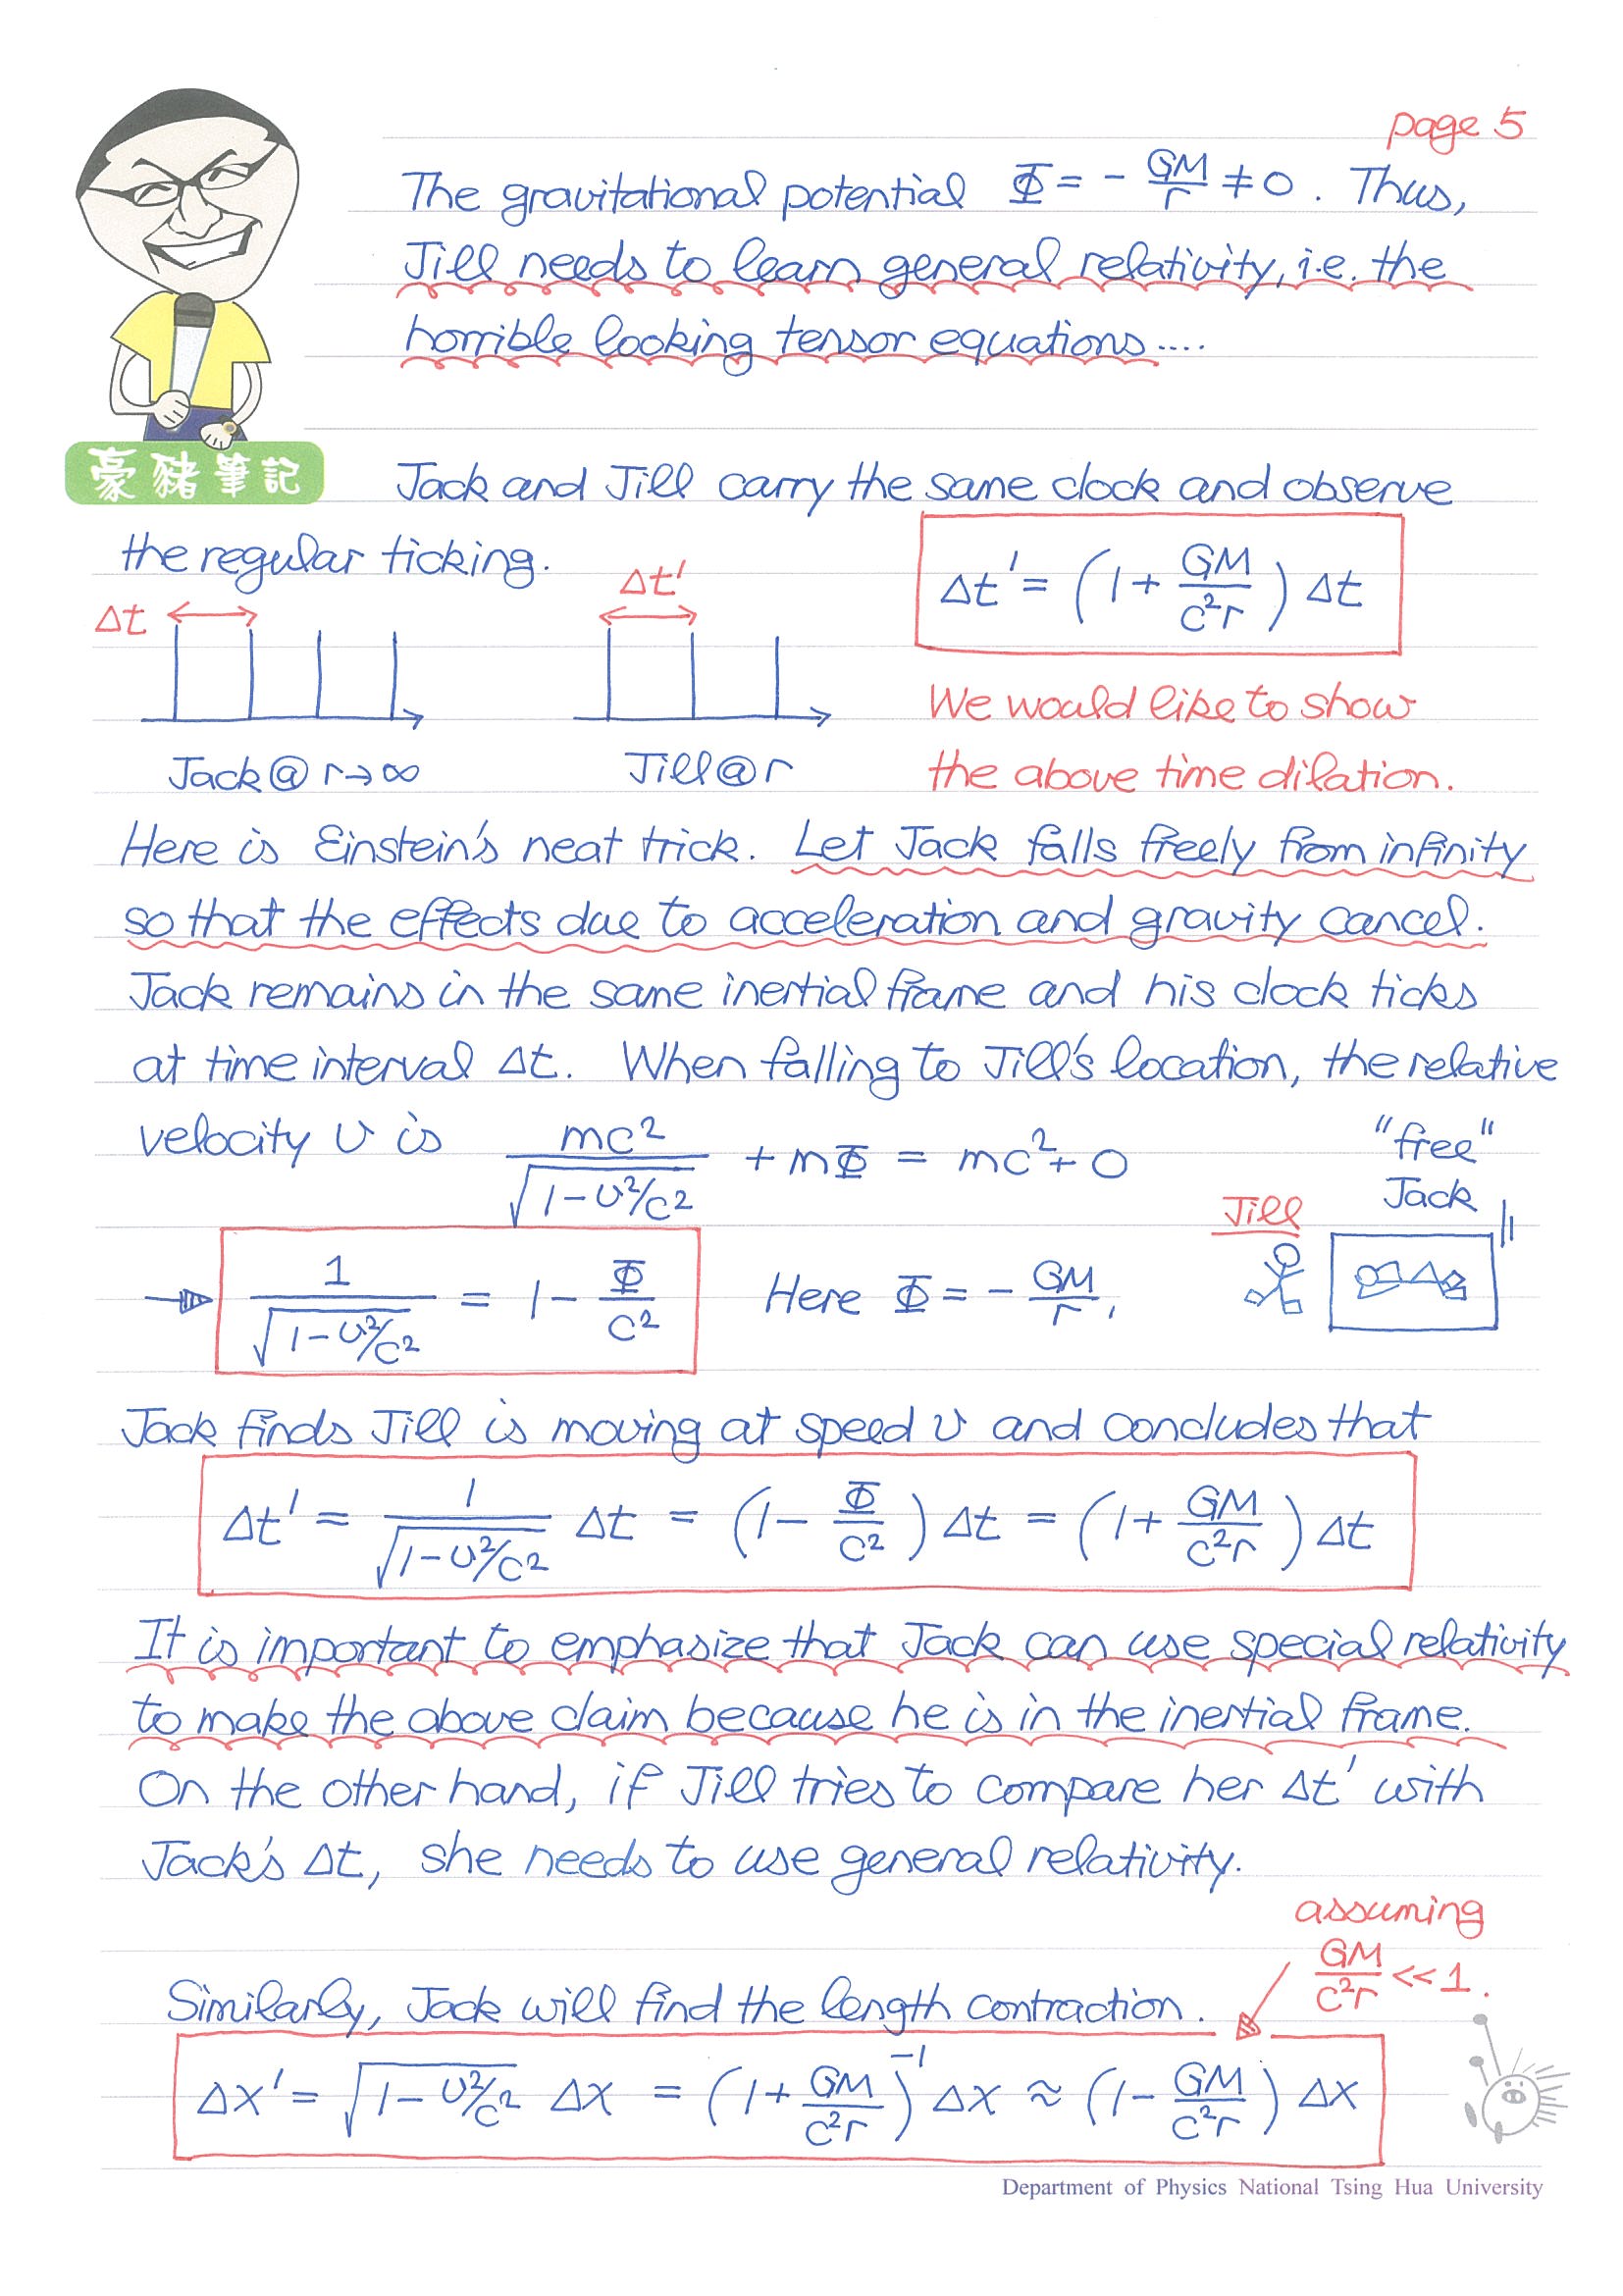 page 5
The gravitational potential Φ = - GM/r ≠ 0 . Thus,
Jill needs to learn general relativity, i.e. the
horrible looking tensor equations....
豪豬筆記
Jack and Jill carry the same clock and observe
the regular ticking.
Δt' = (1 + GM/c²r) Δt
Δt
Δt'
Jack @ r→∞
Jill @ r
We would like to show
the above time dilation.
Here is Einstein's neat trick. Let Jack falls freely from infinity
so that the effects due to acceleration and gravity cancel.
Jack remains in the same inertial frame and his clock ticks
at time interval Δt. When falling to Jill's location, the relative
velocity υ is mc²/√(1-υ²/c²) + mΦ = mc² + 0
"free"
Jack
Jill
1/√(1-υ²/c²) = 1 - Φ/c² Here Φ = - GM/r,
Jack finds Jill is moving at speed υ and concludes that
Δt' = 1/√(1-υ²/c²) Δt = (1 - Φ/c²) Δt = (1 + GM/c²r) Δt
It is important to emphasize that Jack can use special relativity
to make the above claim because he is in the inertial frame.
On the other hand, if Jill tries to compare her Δt' with
Jack's Δt, she needs to use general relativity.
assuming
GM/c²r << 1 .
Similarly, Jack will find the length contraction.
Δx' = √(1-υ²/c²) Δx = (1 + GM/c²r)⁻¹ Δx ≈ (1 - GM/c²r) Δx
Department of Physics National Tsing Hua University